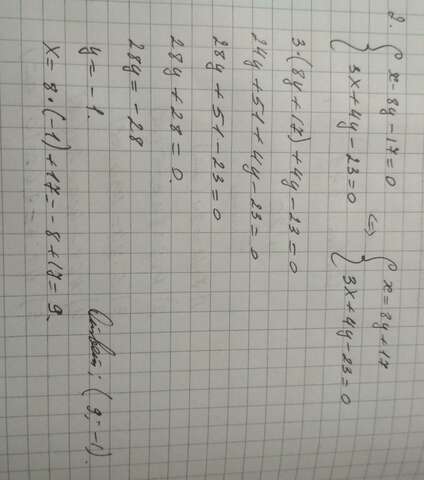 2. { x - 8y - 17 = 0 <=> { x = 8y + 17
{ 3x + 4y - 23 = 0 { 3x + 4y - 23 = 0
3·(8y + 17) + 4y - 23 = 0
24y + 51 + 4y - 23 = 0
28y + 51 - 23 = 0
28y + 28 = 0
28y = -28
y = -1.
x = 8·(-1) + 17 = -8 + 17 = 9.
Ответ: (9; -1).